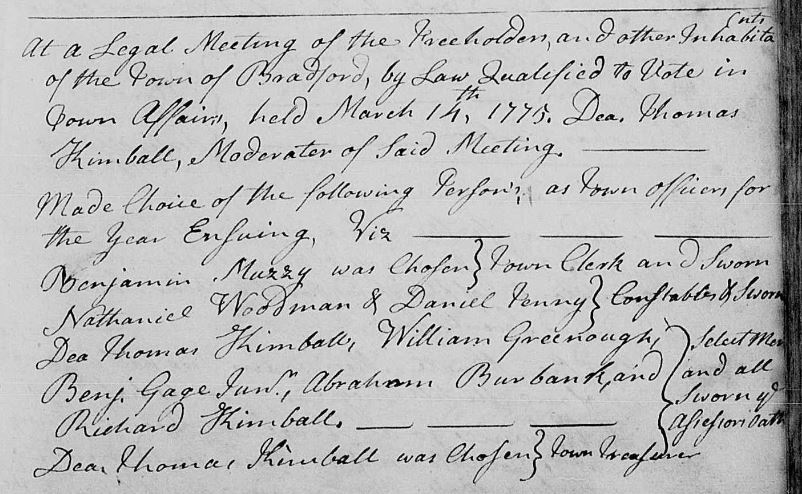 At a Legal Meeting of the Freeholders, and other Inhabitants
of the Town of Bradford, by Law Qualefied to Vote in
Town Affairs, held March 14th, 1775. Dea. Thomas
Kimball, Moderater of Said Meeting.
Made Choice of the following Person's, as Town officers for
the Year Ensuing, Viz
Benjamin Muzzy was Chosen } Town Clerk and Sworn
Nathaniel Woodman & Daniel Tenny } Constables & Sworn
Dea Thomas Kimball, William Greenough, } Select Men
Benj. Gage Junr., Abraham Burbank, and } and all
Sworn ye
Richard Kimball. } Assessors Oath
Dea. Thomas Kimball was Chosen } Town Treasurer